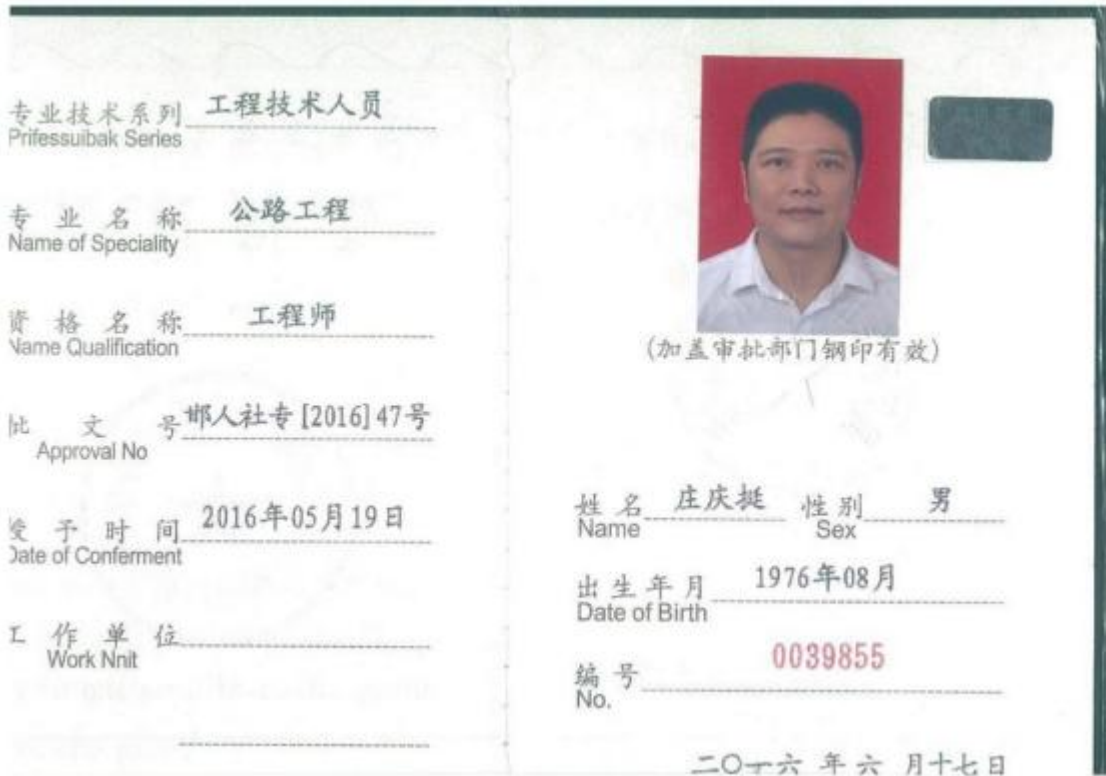 专业技术系列 工程技术人员
Prifessuibak Series
专业名称 公路工程
Name of Speciality
资格名称 工程师
Name Qualification
批文号 邯人社专[2016]47号
Approval No
授予时间 2016年05月19日
Date of Conferment
工作单位
Work Nnit
(加盖审批部门钢印有效)
姓名 庄庆挺 性别 男
Name Sex
出生年月 1976年08月
Date of Birth
编号 0039855
No.
二〇一六 年 六 月十七日